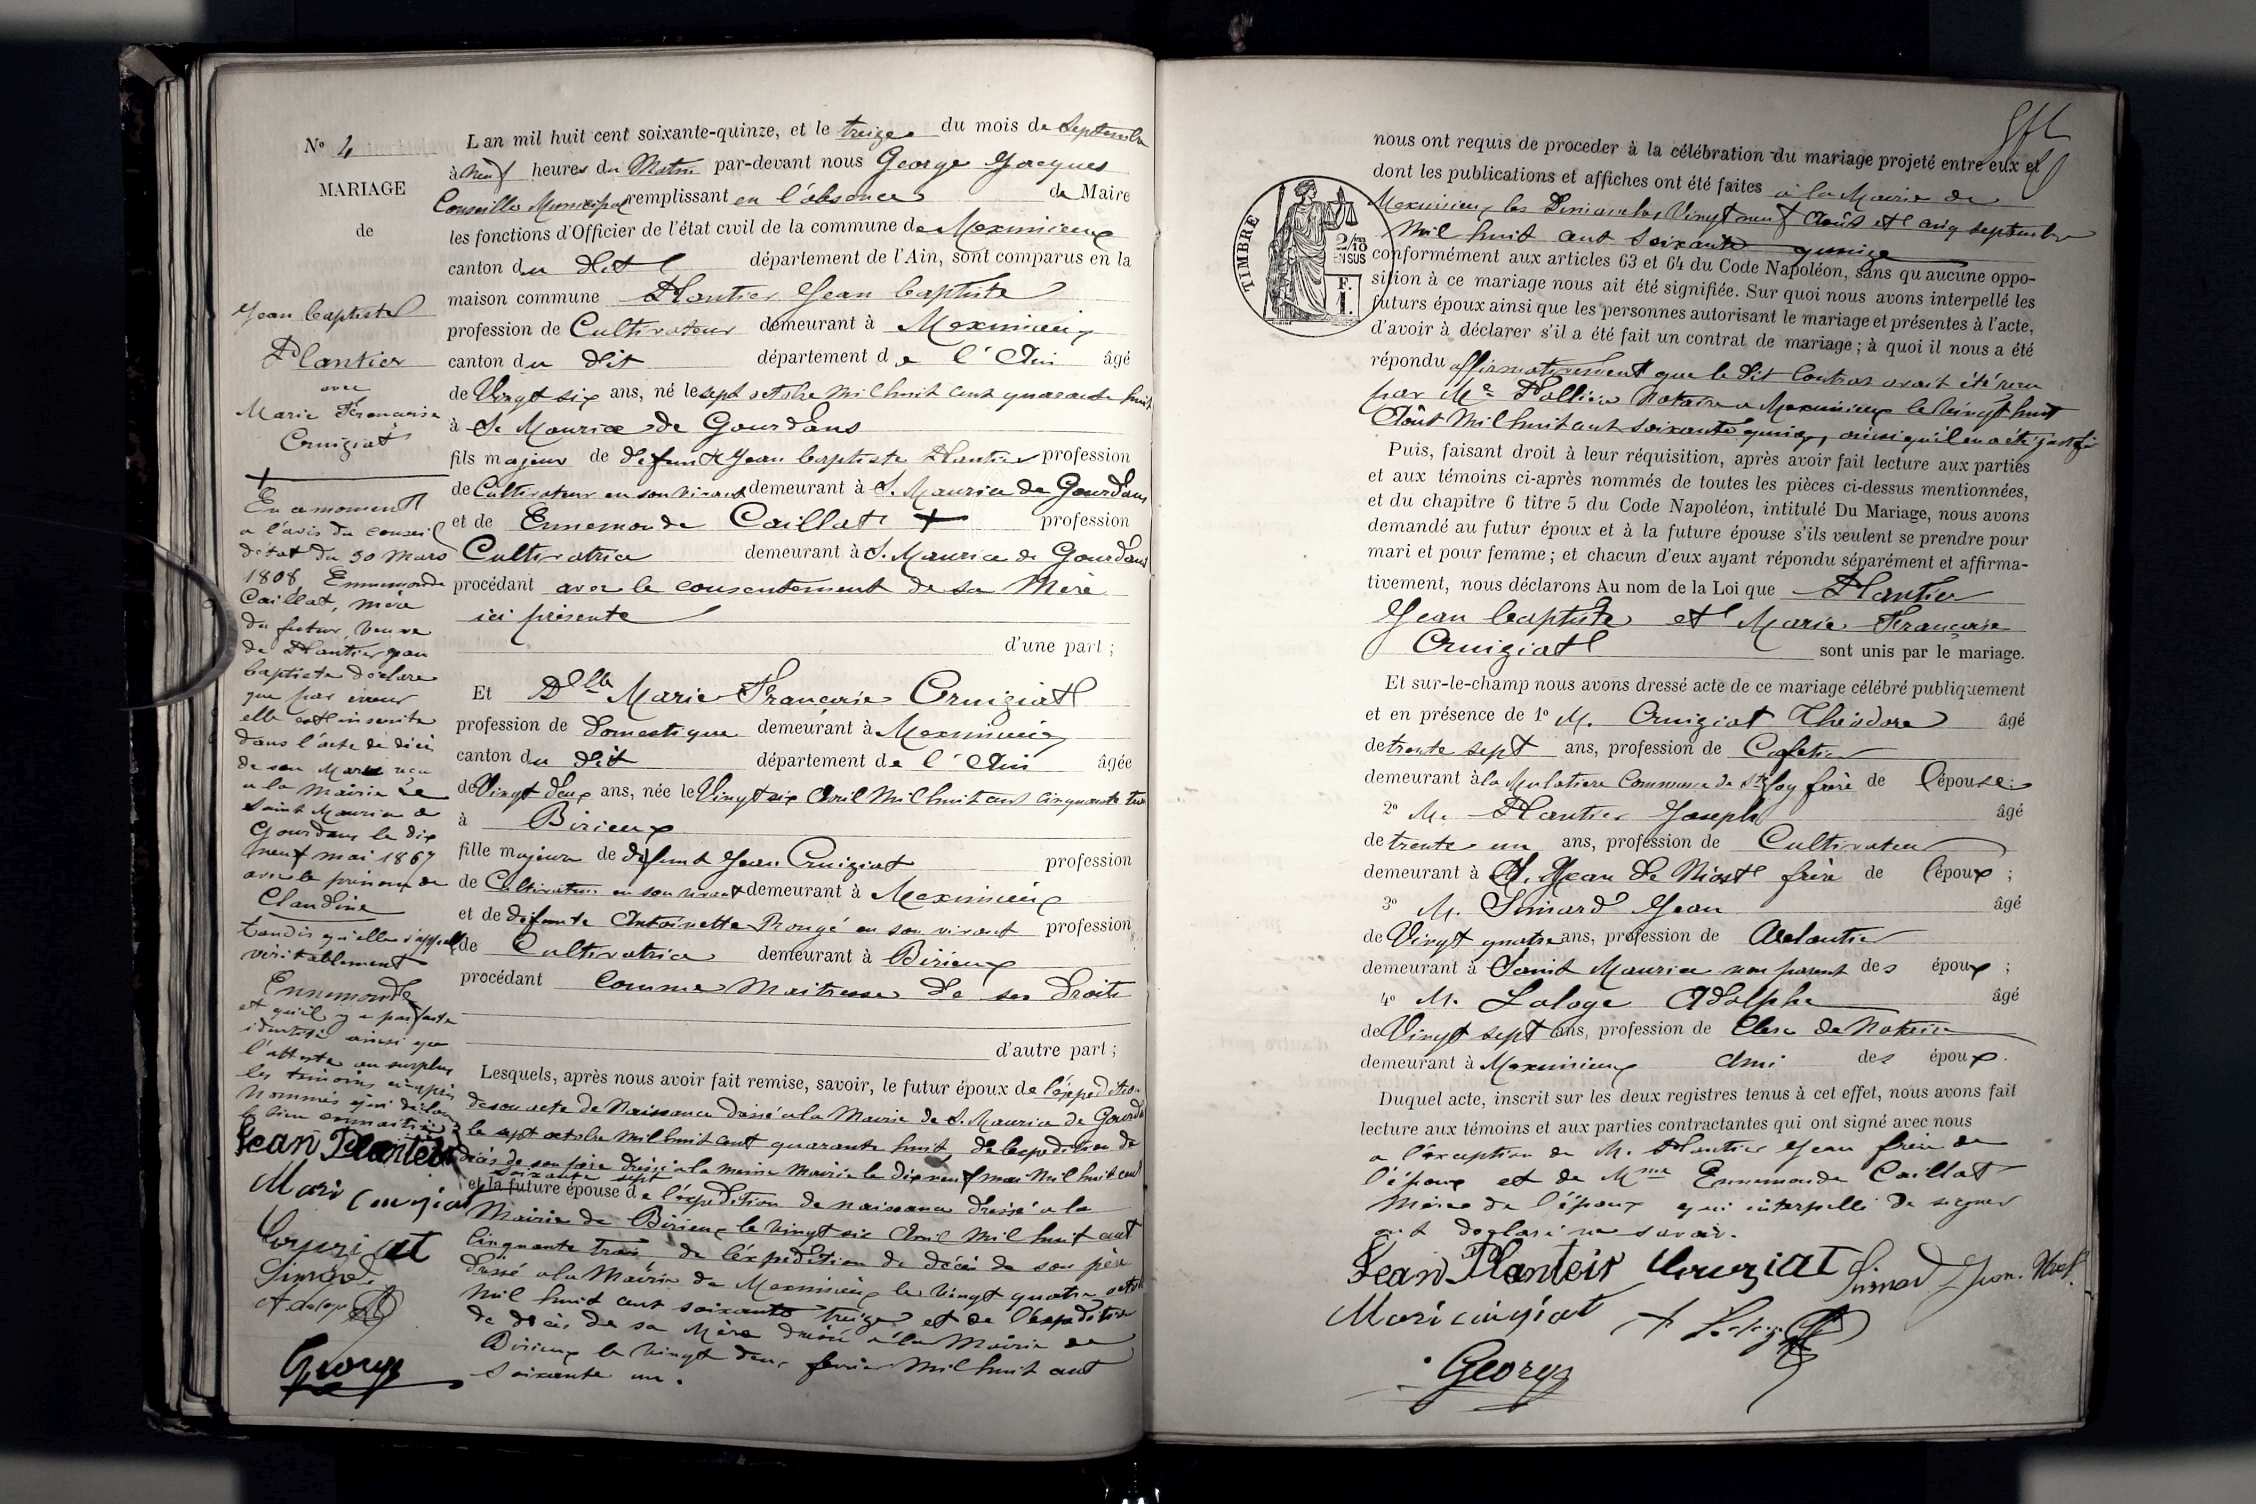 N° 4
MARIAGE
de
Jean baptiste
Plantier
avec
Marie Françoise
Cruiziat
En ce moment
a l'avis du conseil
d'état du 30 mars
1808, Ennemonde
Caillat, mère
du futur, veuve
de Plantier jean
baptiste déclare
que par erreur
elle est inscrite
dans l'acte de décès
de son Mari reçu
a la Mairie de
Saint Maurice de
Gourdans le dix
neuf mai 1867
avec le prénom de
Claudine
tandis qu'elle s'appelle
véritablement
Ennemonde
et qu'il y a parfaite
identité ainsi que
l'atteste au surplus
les témoins ci après
Nommés qui déclare
le bien connaitre
Jean Planteir
Mari Cruiziat
Couziat
Simard
A. Laloge
George
L'an mil huit cent soixante-quinze, et le treize du mois de Septembre
à Neuf heures du Matin par-devant nous George Jacques
Conseiller Municipal remplissant en l'absence de Maire
les fonctions d'Officier de l'état civil de la commune de Meximieux
canton du dit département de l'Ain, sont comparus en la
maison commune Plantier Jean baptiste
profession de Cultivateur demeurant à Meximieux
canton du dit département de l'Ain âgé
de Vingt six ans, né le sept octobre mil huit cent quarante huit
à St Maurice de Gourdans
fils majeur de défunt Jean baptiste Plantier profession
de Cultivateur en son vivant demeurant à St Maurice de Gourdans
et de Ennemonde Caillat profession
Cultivatrice demeurant à St Maurice de Gourdans
procédant avec le consentement de sa Mère
ici présente
d'une part ;
Et Dlle Marie Françoise Cruiziat
profession de Domestique demeurant à Meximieux
canton du dit département de l'Ain âgée
de Vingt deux ans, née le Vingt six Avril Mil huit cent cinquante trois
à Birieux
fille majeure de défunt Jean Cruiziat profession
de Cultivateur en son vivant demeurant à Meximieux
et de défunte Antoinette Rougé en son vivant profession
de Cultivatrice demeurant à Birieux
procédant Comme Maitresse de ses droits
d'autre part ;
Lesquels, après nous avoir fait remise, savoir, le futur époux de l'éxpedition
de son acte de Naissance dressé a la Mairie de St Maurice de Gourdans
le sept octobre Mil huit cent quarante huit, de l'expedition de
décès de son père dressé a la meme Mairie le dix neuf mai Mil huit cent
soixante sept
et la future épouse de l'éxpedition de naissance dressé a la
Mairie de Birieux le vingt six Avril Mil huit cent
Cinquante trois de l'éxpedition de décès de son père
dressé a la Mairie de Meximieux le vingt quatre octobre
Mil huit cent soixante treize et de l'éxpedition
de décès de sa Mère dressé a la Mairie de
Birieux le vingt deux fevrier Mil huit cent
soixante un.
nous ont requis de proceder à la célébration du mariage projeté entre eux et
dont les publications et affiches ont été faites a la Mairie de
Meximieux les Dimanches Vingt neuf Août et cinq septembre
Mil huit cent soixante quinze
TIMBRE
2/10 EN SUS
F. 1.
conformément aux articles 63 et 64 du Code Napoléon, sans qu'aucune oppo-
sition à ce mariage nous ait été signifiée. Sur quoi nous avons interpellé les
futurs époux ainsi que les personnes autorisant le mariage et présentes à l'acte,
d'avoir à déclarer s'il a été fait un contrat de mariage ; à quoi il nous a été
répondu affirmativement que le dit Contrat avait été reçu
par Me Pollier Notaire a Meximieux le vingt huit
Août Mil huit cent soixante quinze, ainsi qu'il en a été justifié
Puis, faisant droit à leur réquisition, après avoir fait lecture aux parties
et aux témoins ci-après nommés de toutes les pièces ci-dessus mentionnées,
et du chapitre 6 titre 5 du Code Napoléon, intitulé Du Mariage, nous avons
demandé au futur époux et à la future épouse s'ils veulent se prendre pour
mari et pour femme ; et chacun d'eux ayant répondu séparément et affirma-
tivement, nous déclarons Au nom de la Loi que Plantier
Jean baptiste et Marie Françoise
Cruiziat sont unis par le mariage.
Et sur-le-champ nous avons dressé acte de ce mariage célébré publiquement
et en présence de 1° M. Cruiziat Théodore âgé
de trente sept ans, profession de Cafetier
demeurant à la Mulatiere Commune de Ste foy frère de l'épouse
2° M. Plantier Joseph âgé
de trente un ans, profession de Cultivateur
demeurant à St Jean de Niost frère de l'époux ;
3° M. Simard Jean âgé
de Vingt quatre ans, profession de
demeurant à Saint Maurice non parent des époux ;
4° M. Laloge Adolphe âgé
de Vingt sept ans, profession de Clerc de Notaire
demeurant à Meximieux Ami des époux.
Duquel acte, inscrit sur les deux registres tenus à cet effet, nous avons fait
lecture aux témoins et aux parties contractantes qui ont signé avec nous
a l'éxception de M. Plantier Jean frère de
l'époux et de Mme Ennemonde Caillat
Mère de l'époux qui interpellé de signer
ont declaré ne savoir.
Jean Planteir Couziat Simard Jean
Mari Cruiziat A. Laloge
George